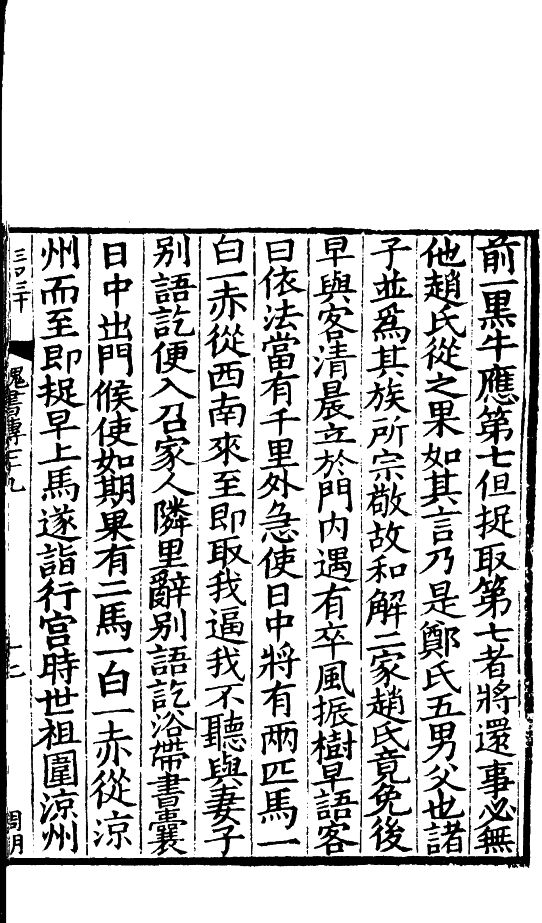 前一黑牛應第七但捉取第七者將還事必無
他趙氏從之果如其言乃是鄭氏五男父也諸
子並爲其族所宗敬故和解二家趙氏竟免後
早與客清晨立於門內遇有卒風振樹早語客
曰依法當有千里外急使日中將有兩匹馬一
白一赤從西南來至即取我逼我不聽與妻子
別語訖便入召家人隣里辭別語訖浴帶書囊
日中出門候使如期果有二馬一白一赤從涼
州而至即捉早上馬遂詣行宮時世祖圍涼州
三百三十 魏書傳七十九 十七 周明